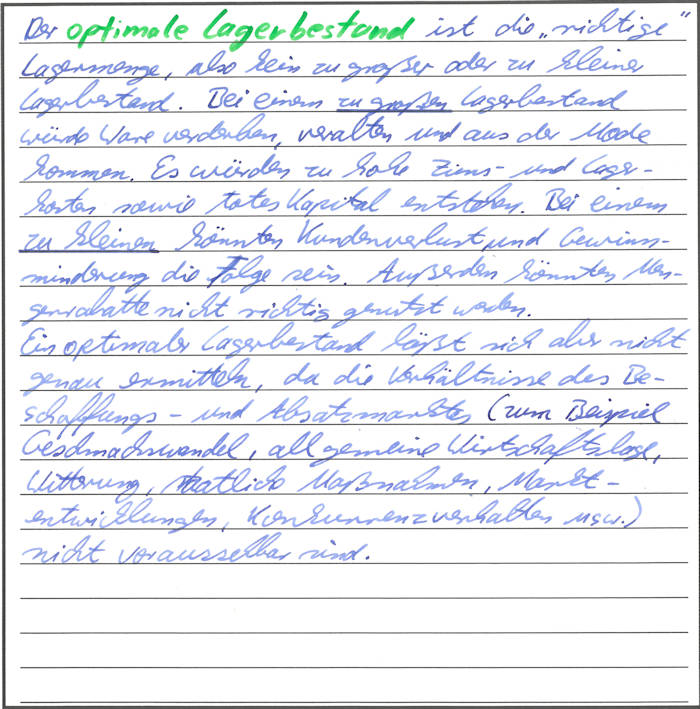 Der optimale Lagerbestand ist die „richtige"
Lagermenge, also kein zu großer oder zu kleiner
Lagerbestand. Bei einem zu großen Lagerbestand
würde Ware verderben, veralten und aus der Mode
kommen. Es würden zu hohe Zins- und Lager-
kosten sowie totes Kapital entstehen. Bei einem
zu kleinen könnten Kundenverlust und Gewinn-
minderung die Folge sein. Außerdem könnten Men-
genrabatte nicht richtig genutzt werden.
Ein optimaler Lagerbestand läßt sich aber nicht
genau ermitteln, da die Verhältnisse des Be-
schaffungs- und Absatzmarktes (zum Beispiel
Geschmackswandel, allgemeine Wirtschaftslage,
Witterung, staatliche Maßnahmen, Markt-
entwicklungen, Konkurrenzverhalten usw.)
nicht voraussehbar sind.